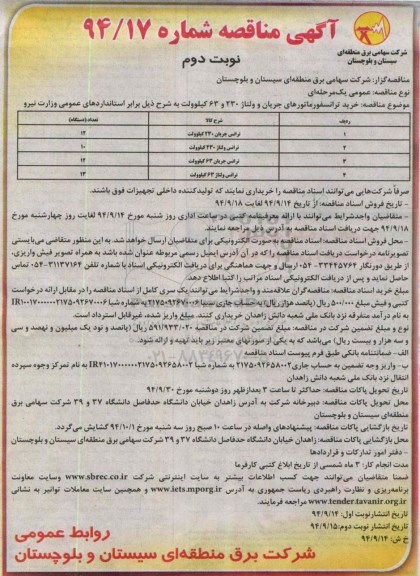 شرکت سهامی برق منطقه‌ای
سیستان و بلوچستان
آگهی مناقصه شماره ۹۴/۱۷
نوبت دوم
مناقصه‌گزار: شرکت سهامی برق منطقه‌ای سیستان و بلوچستان
نوع مناقصه: عمومی یک‌مرحله‌ای
موضوع مناقصه: خرید ترانسفورماتورهای جریان و ولتاژ ۲۳۰ و ۶۳ کیلوولت به شرح ذیل برابر استانداردهای عمومی وزارت نیرو
ردیف شرح کالا تعداد (دستگاه)
۱ ترانس جریان ۲۳۰ کیلوولت ۱۲
۲ ترانس ولتاژ ۲۳۰ کیلوولت ۱۰
۳ ترانس جریان ۶۳ کیلوولت ۱۲
۴ ترانس ولتاژ ۶۳ کیلوولت ۱۳
صرفاً شرکت‌هایی می‌توانند اسناد مناقصه را خریداری نمایند که تولیدکننده داخلی تجهیزات فوق باشند.
- تاریخ فروش اسناد مناقصه: از تاریخ ۹۴/۹/۱۴ لغایت ۹۴/۹/۱۸
- متقاضیان واجدشرایط می‌توانند با ارائه معرفینامه کتبی در ساعت اداری روز شنبه مورخ ۹۴/۹/۱۴ لغایت روز چهارشنبه مورخ
۹۴/۹/۱۸ جهت دریافت اسناد مناقصه به آدرس ذیل مراجعه نمایند.
- محل فروش اسناد مناقصه: اسناد مناقصه به صورت الکترونیکی برای متقاضیان ارسال خواهد شد. به این منظور متقاضی می‌بایستی
تصویرنامه درخواست دریافت اسناد مناقصه را که در آن آدرس ایمیل رسمی مربوطه عنوان شده باشد به همراه تصویر فیش واریزی،
از طریق دورنگار ۳۳۴۴۵۷۶۴-۰۵۴ ارسال و جهت هماهنگی برای دریافت الکترونیکی اسناد با شماره تلفن ۳۱۱۳۷۱۶۴-۰۵۴ تماس
حاصل نماید و پس از دریافت الکترونیکی اسناد مراتب را کتباً اطلاع دهد.
مبلغ خرید اسناد مناقصه: مناقصه‌گران علاقه‌مند و واجدشرایط می‌توانند یک سری کامل از اسناد مناقصه را در مقابل ارائه درخواست
کتبی و فیش مبلغ ۵۰۰/۰۰۰ ریال (پانصد هزار ریال) به حساب جاری سیبا
به نام درآمد متفرقه نزد بانک ملی شعبه دانش زاهدان خریداری کنند. مبلغ واریز شده، غیرقابل استرداد است.
نوع و مبلغ تضمین شرکت در مناقصه: مبلغ تضمین شرکت در مناقصه ۵۹۱/۹۳۳/۰۲۰ ریال (پانصد و نود یک میلیون و نهصد و سی
و سه هزار و بیست ریال) می‌باشد که به یکی از صورتهای معتبر زیر باید تهیه و ارائه شود.
الف- ضمانتنامه بانکی طبق فرم پیوست اسناد مناقصه
ب- واریز وجه تضمین به حساب جاری ۲۱۷۵۰۹۲۶۵۸۰۰۲ به شماره شبا به نام تمرکز وجوه سپرده
انتقال نزد بانک ملی شعبه دانش زاهدان
تاریخ تحویل پاکات مناقصه: حداکثر تا ساعت ۳ بعدازظهر روز دوشنبه مورخ ۹۴/۹/۳۰
محل تحویل پاکات مناقصه: دبیرخانه شرکت به آدرس زاهدان خیابان دانشگاه حدفاصل دانشگاه ۳۷ و ۳۹ شرکت سهامی برق
منطقه‌ای سیستان و بلوچستان
تاریخ بازگشایی پاکات مناقصه: پیشنهادهای واصله در ساعت ۱۰ صبح روز سه شنبه مورخ ۹۴/۱۰/۱ گشایش می‌گردد.
محل بازگشایی پاکات مناقصه: زاهدان خیابان دانشگاه حدفاصل دانشگاه ۳۷ و ۳۹ شرکت سهامی برق منطقه‌ای سیستان و بلوچستان
- دفتر امور تدارکات و قراردادها
مدت انجام کار: ۳ ماه شمسی از تاریخ ابلاغ کتبی کارفرما
ضمناً متقاضیان می‌توانند جهت کسب اطلاعات بیشتر به سایت اینترنتی شرکت www.sbrec.co.ir وسایت معاونت
برنامه‌ریزی و نظارت راهبردی ریاست جمهوری به آدرس www.iets.mporg.ir و همچنین سایت معاملات توانیر به نشانی
www.tender.tavanir.org.ir مراجعه فرمایند.
تاریخ انتشار نوبت اول: ۹۴/۹/۱۴
تاریخ انتشار نوبت دوم: ۹۴/۹/۱۵
خ ش: ۹۴/۹/۱۴
روابط عمومی
شرکت برق منطقه‌ای سیستان و بلوچستان